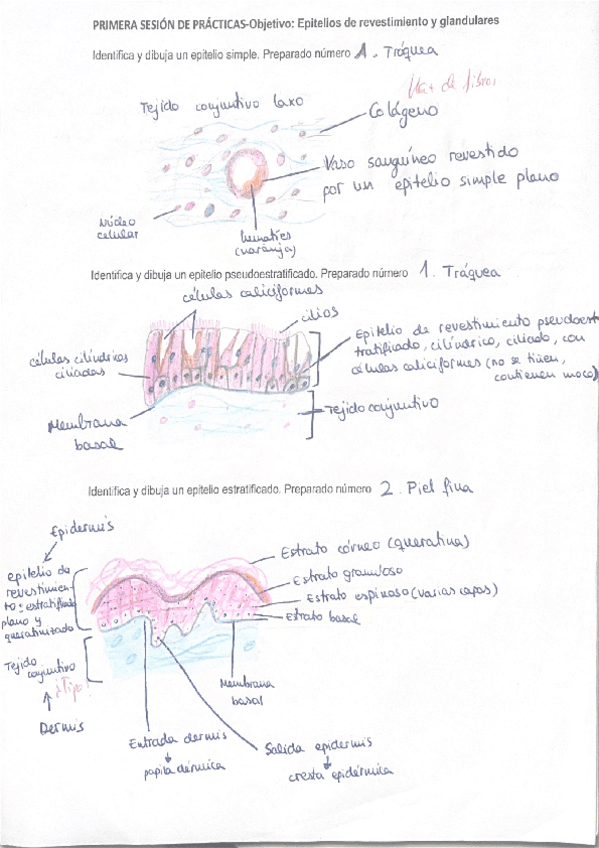 PRIMERA SESIÓN DE PRÁCTICAS-Objetivo: Epitelios de revestimiento y glandulares
Identifica y dibuja un epitelio simple. Preparado número 1. Tráquea
de fibras
Tejido conjuntivo laxo
Colágeno
Vaso sanguíneo revestido
por un epitelio simple plano
Núcleo
celular
hematíes
(naranja)
Identifica y dibuja un epitelio pseudoestratificado. Preparado número 1. Tráquea
células caliciformes
cilios
Epitelio de revestimiento pseudoes-
tratificado, cilíndrico, ciliado, con
células caliciformes (no se tiñen,
contienen moco)
células cilíndricas
ciliadas
Tejido conjuntivo
Membrana
basal
Identifica y dibuja un epitelio estratificado. Preparado número 2. Piel fina
Epidermis
epitelio de
revestimien-
to: estratificado
plano y
queratinizado
Estrato córneo (queratina)
Estrato granuloso
Estrato espinoso (varias capas)
Estrato basal
Tejido
conjuntivo
¿Tipo?
Dermis
Membrana
basal
Entrada dermis
papila dérmica
Salida epidermis
cresta epidérmica